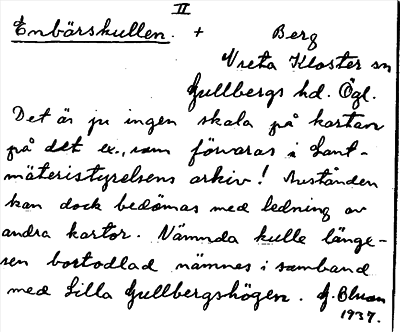 II
Enbärskullen. + Berg
Vreta Kloster sn
Gullbergs hd. Ögl.
Det är ju ingen skala på kartan
på det ex., som förvaras i Lant-
mäteristyrelsens arkiv! Avstånden
kan dock bedömas med ledning av
andra kartor. Nämnda kulle länge-
sen bortodlad nämnes i samband
med Lilla Gullbergshögen. G.
1937.